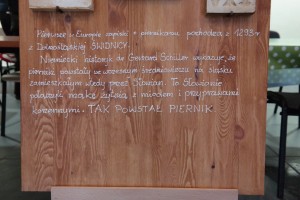 Pierwsze w Europie zapiski o piernikarzu pochodzą z 1293 r
z Dolnośląskiej ŚWIDNICY.
Niemiecki historyk dr Gerhard Schiller wykazuje, że
pierniki powstały we wczesnym średniowieczu na Śląsku
zamieszkałym wtedy przez Słowian. To Słowianie
połączyli mąkę żytnią z miodem i przyprawami
korzennymi. TAK POWSTAŁ PIERNIK.